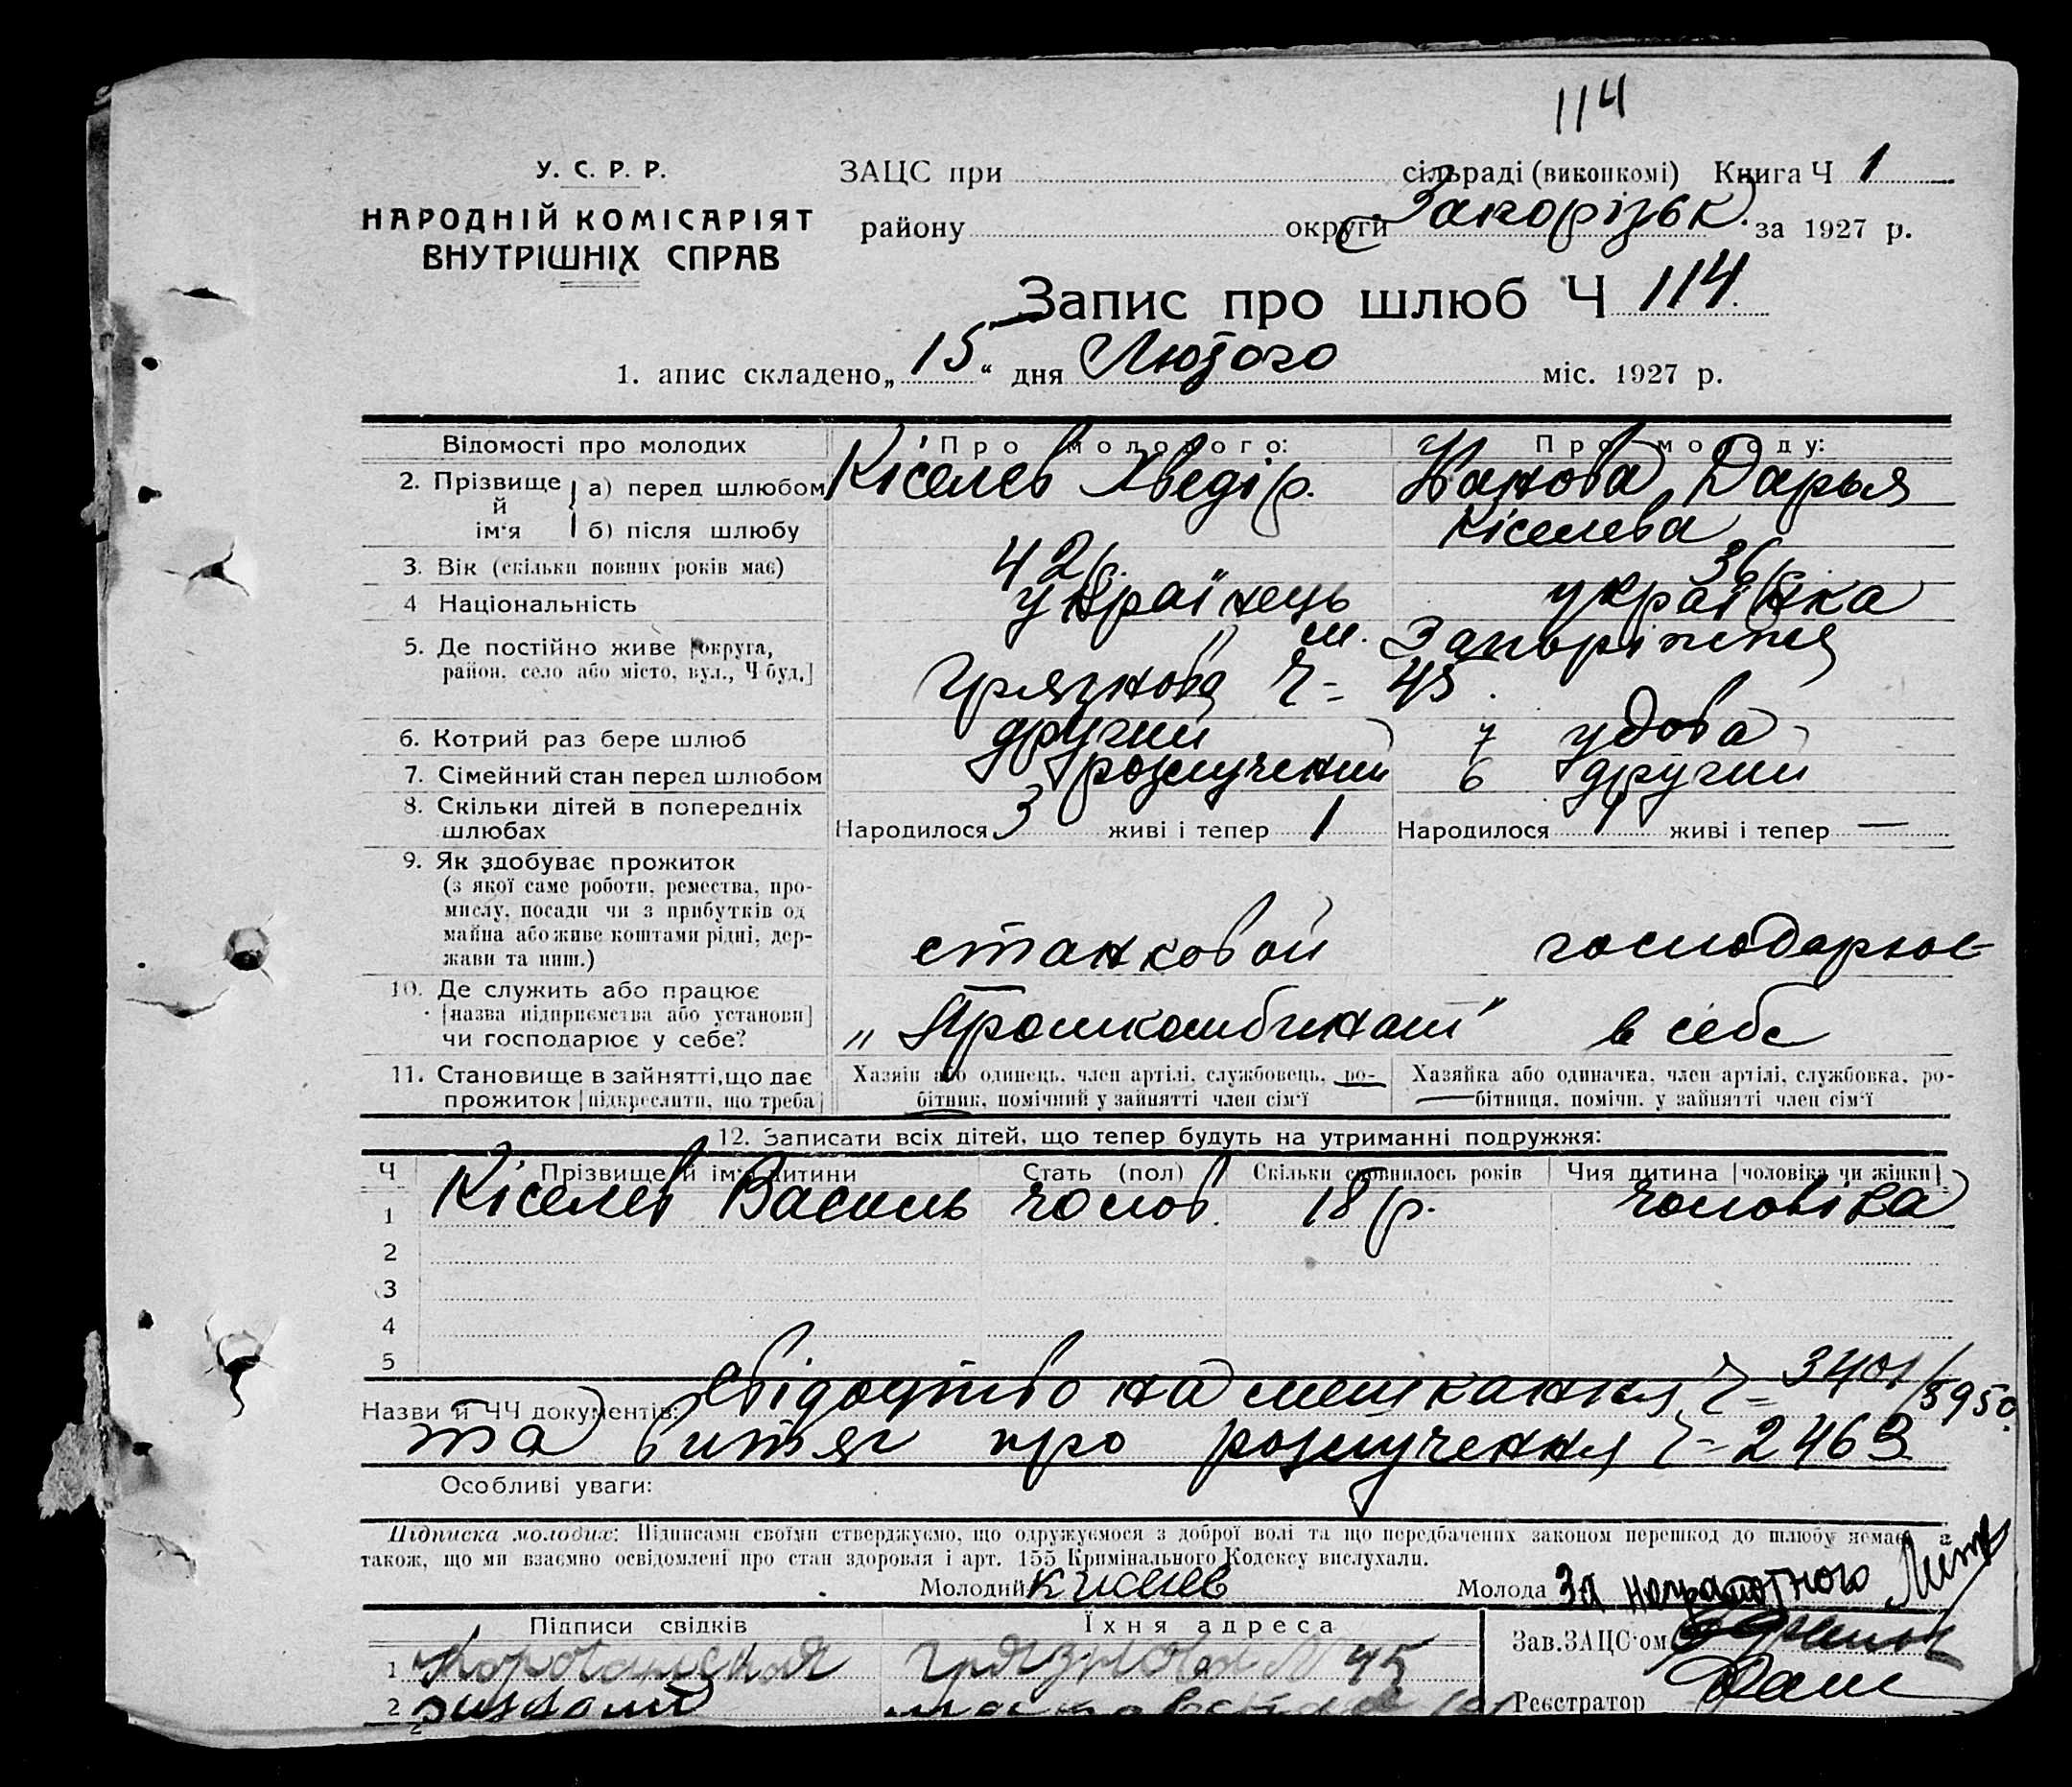 114
У. С. Р. Р.
НАРОДНІЙ КОМІСАРІЯТ
ВНУТРІШНІХ СПРАВ
ЗАЦС при сільраді (виконкомі) Книга Ч 1
району округи Запорізьк. за 1927 р.
Запис про шлюб Ч 114.
1. апис складено „15“ дня Лютого міс. 1927 р.
Відомості про молодих Про молодого: Про молоду:
2. Прізвище й ім'я а) перед шлюбом Кіселев Хведір. Іванова Дарья
б) після шлюбу Кіселева
3. Вік (скільки повних років має) 42р. 36р.
4 Національність українець українка
5. Де постійно живе [округа, район, село або місто, вул., Ч буд.] м. Запоріжжя
Грязнова Ч = 45.
6. Котрий раз бере шлюб другий 7 удова
7. Сімейний стан перед шлюбом розлучений 6 другий
8. Скільки дітей в попередніх шлюбах Народилося 3 живі і тепер 1 Народилося 1 живі і тепер —
9. Як здобуває прожиток
(з якої саме роботи, ремества, про-
мислу, посади чи з прибутків од
майна або живе коштами рідні, дер-
жави та инш.) станковой господарює
10. Де служить або працює
[назва підприємства або установи]
чи господарює у себе? „Промкомбинат" в себе
11. Становище в зайнятті, що дає
прожиток [підкреслити, що треба]
Хазяін або одинець, член артілі, службовець, ро-
бітник, помічний у зайнятті член сім'ї
Хазяйка або одиначка, член артілі, службовка, ро-
бітниця, помічн. у зайнятті член сім'ї
12. Записати всіх дітей, що тепер будуть на утриманні подружжя:
Ч Прізвище й ім'я дитини Стать (пол) Скільки сповнилось років Чия дитина [чоловіка чи жінки]
1 Кіселев Василь чолов. 18 р. чоловіка
2
3
4
5
Назви й ЧЧ документів: Свідоцтво на мешкання Ч = 3401/5950
та витяг про розлучення Ч = 2463
Особливі уваги:
Підписка молодих: Підписами своїми стверджуємо, що одружуємося з доброї волі та що передбачених законом перешкод до шлюбу немає, а
також, що ми взаємно освідомлені про стан здоровля і арт. 155 Кримінального Кодексу вислухали.
Молодий Кисилев Молода За неграмотного
Підписи свідків Їхня адреса Зав. ЗАЦС'ом
1 Грязнова № 45
2 Реєстратор